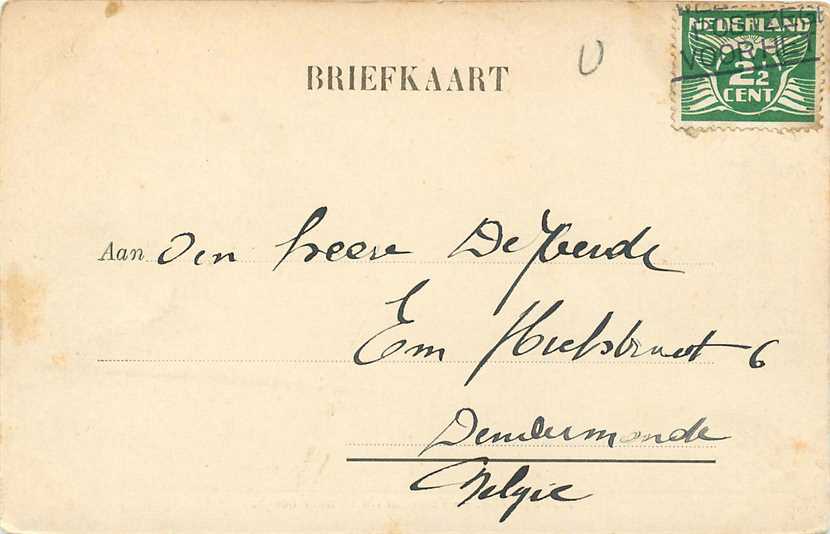 NEDERLAND
2½
CENT
BRIEFKAART
Aan Den heere De
Em Hielstraat 6
Dendermonde
Belgie